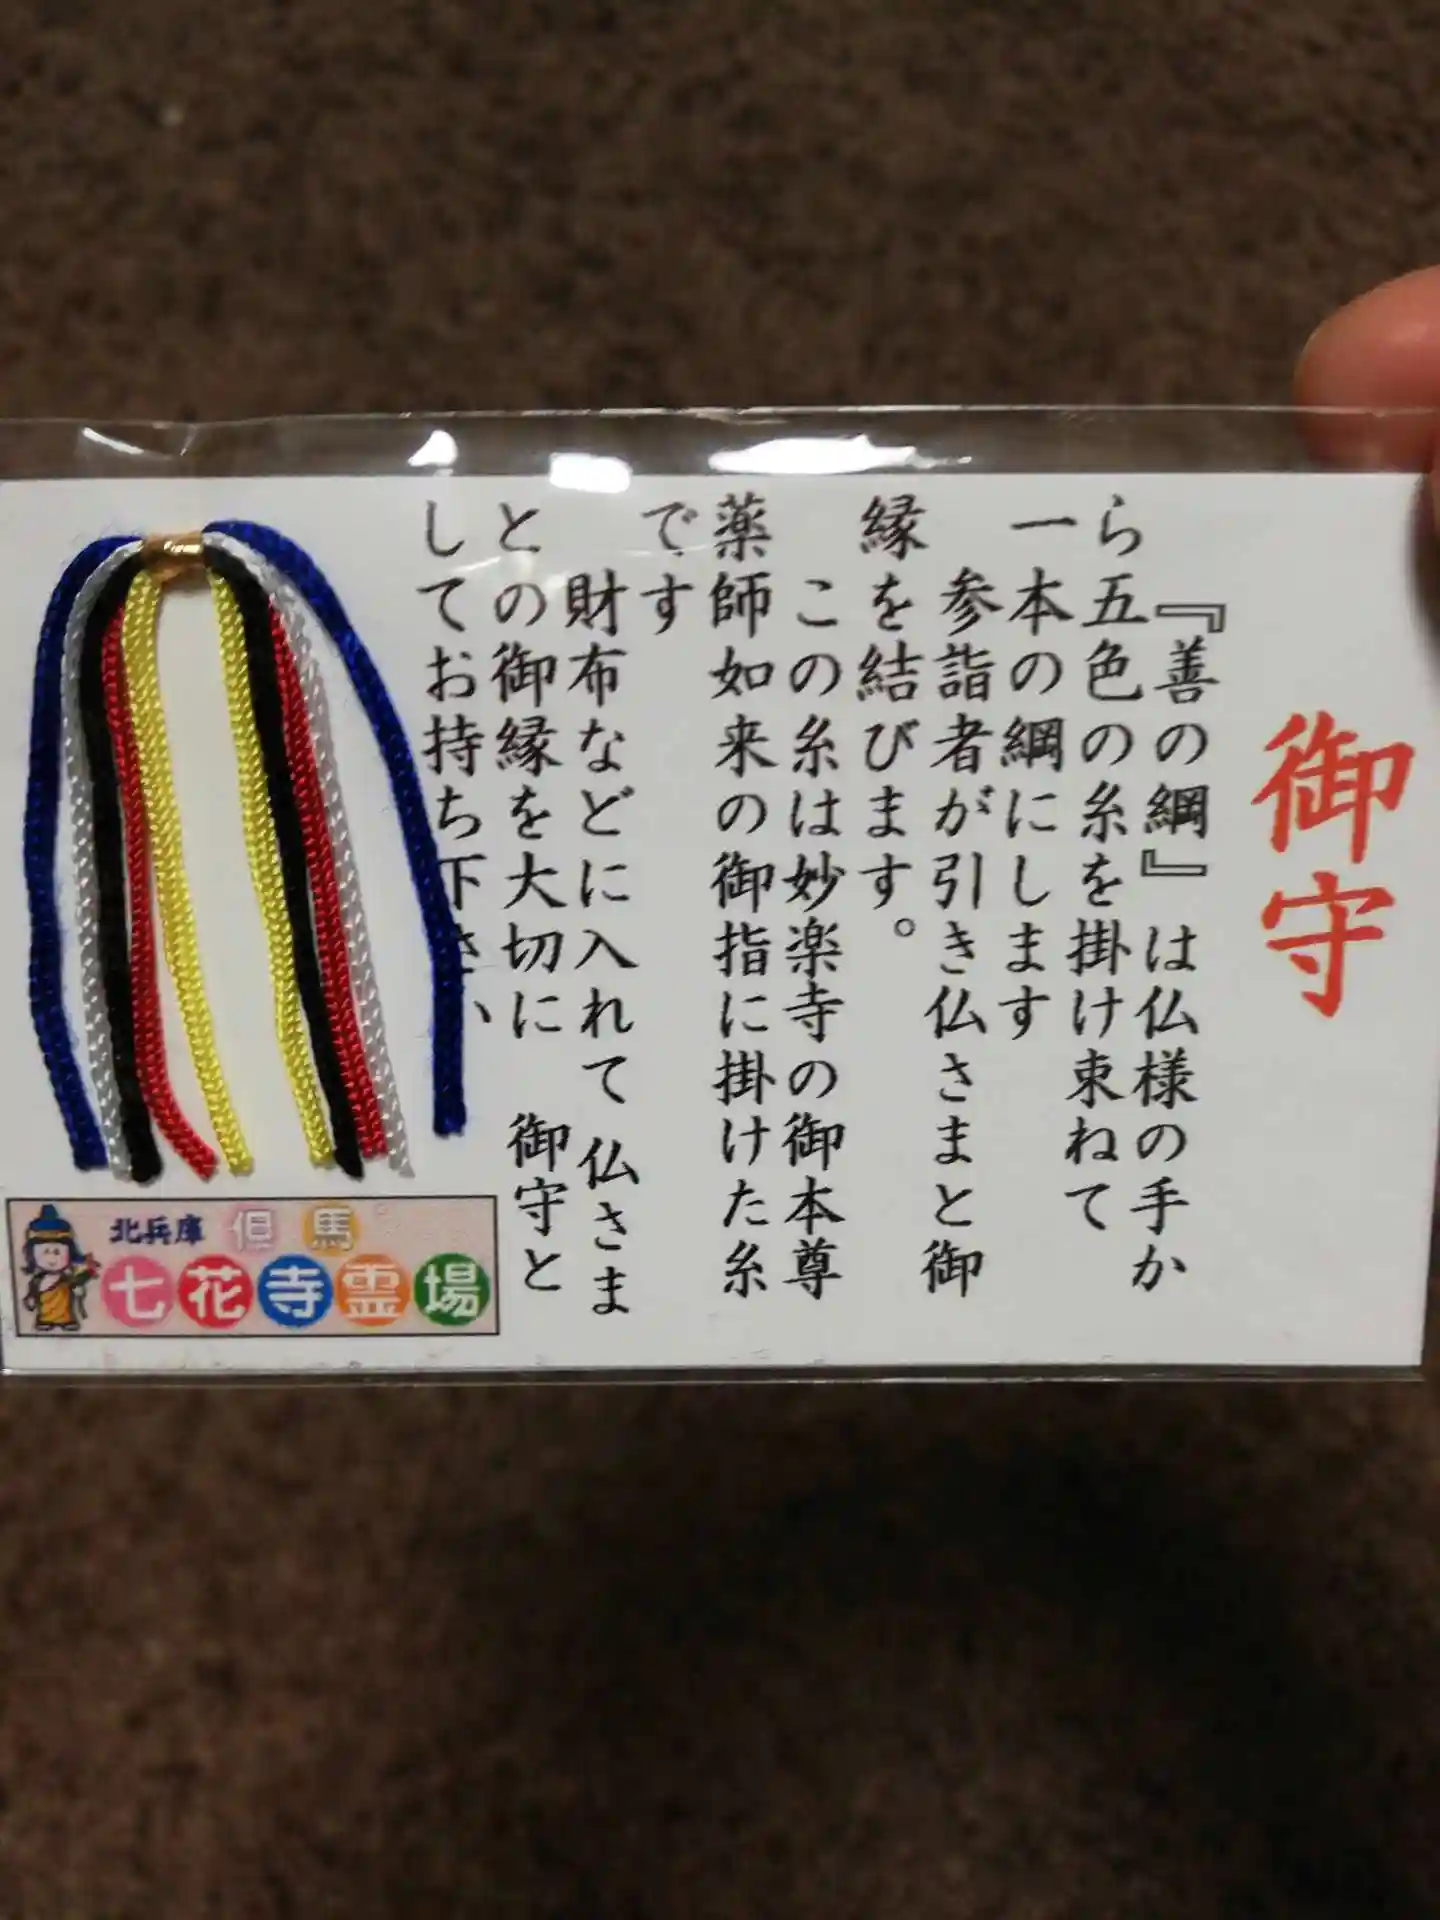 御守
『善の綱』は仏様の手か
ら五色の糸を掛け束ねて
一本の綱にします
参詣者が引き仏さまと御
縁を結びます。
この糸は妙楽寺の御本尊
薬師如来の御指に掛けた糸
です
財布などに入れて 仏さま
との御縁を大切に 御守と
してお持ち下さい
北兵庫 但馬
七花寺霊場